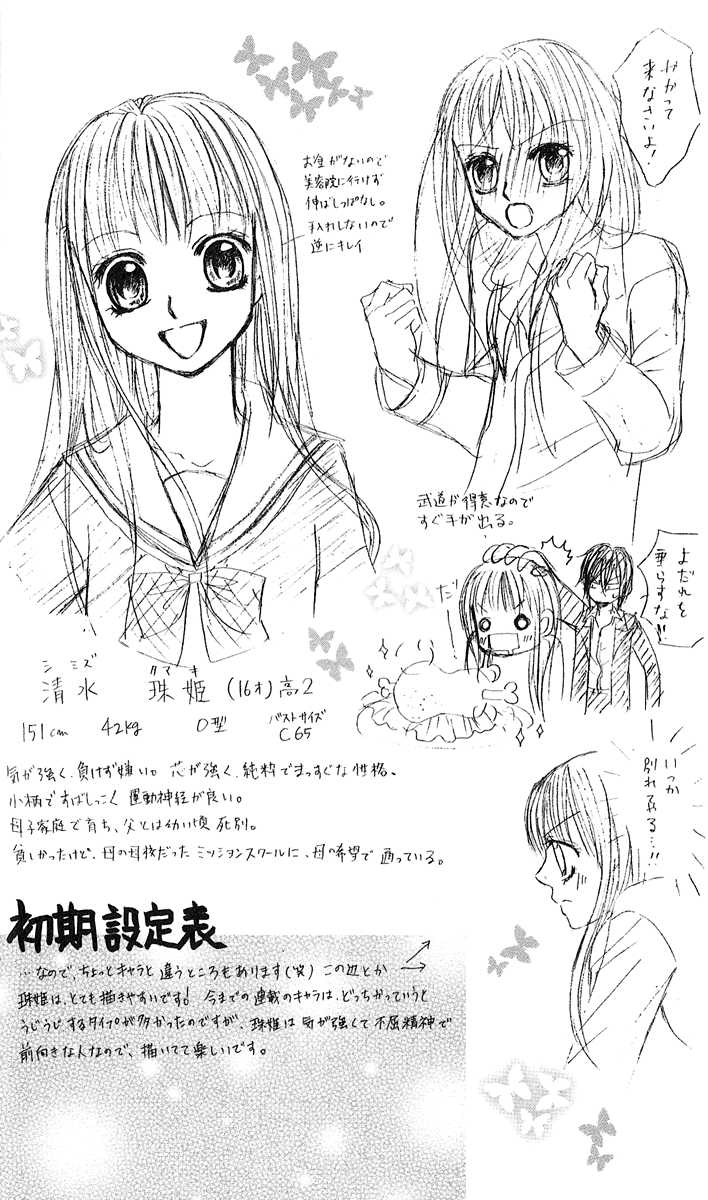 お金がないので
美容院に行けず
伸ばしっぱなし。
手入れしないので
逆にキレイ
かかって
来なさいよ!
武道が得意なので
すぐ手が出る。
だ
よだれを
垂らすな!!
シミズ タマキ
清水 珠姫 (16才) 高2
151cm 42kg O型 バストサイズ C65
気が強く、負けず嫌い。芯が強く、純粋でまっすぐな性格。
小柄ですばしっこく 運動神経が良い。
母子家庭で育ち、父とは幼い頃 死別。
貧しかったけど、母の母校だった ミッションスクールに、母の希望で 通っている。
いつか
別れてやる…!!
初期設定表
…なので、ちょっとキャラと違うところもあります(笑) この辺とか
珠姫は、とても描きやすいです! 今までの連載のキャラは、どっちかっていうと
うじうじするタイプが多かったのですが、珠姫は 気が強くて 不屈精神で
前向きな人なので、描いてて楽しいです。